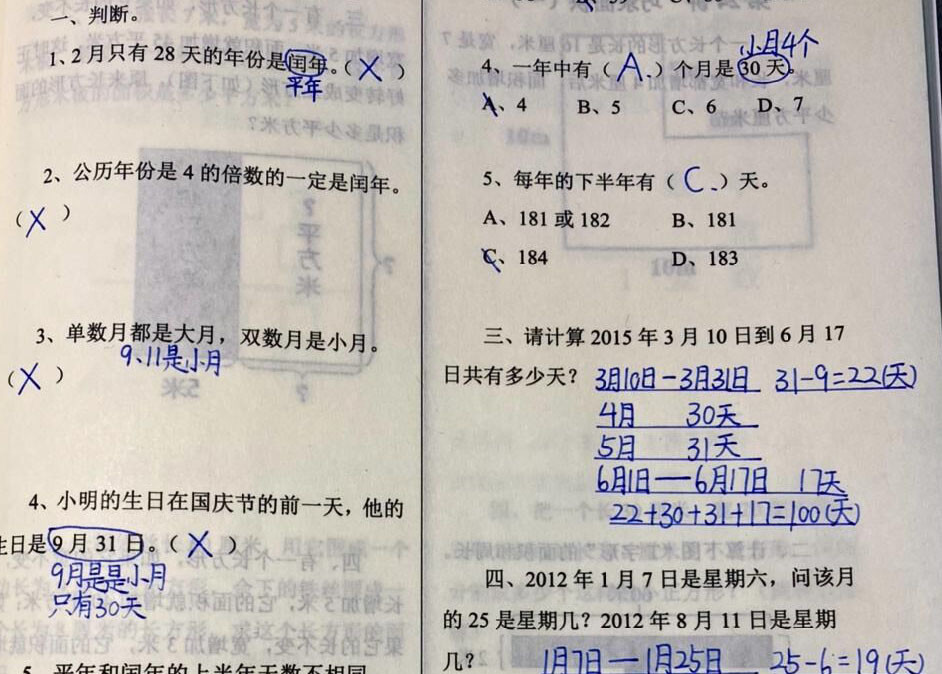 一、判断。
1、2月只有28天的年份是闰年。（X）
平年
2、公历年份是4的倍数的一定是闰年。
（X）
3、单数月都是大月，双数月是小月。
9、11是小月
（X）
4、小明的生日在国庆节的前一天，他的
生日是9月31日。（X）
9月是是小月
只有30天
5、平年和闰年的上半年天数不相同
小月4个
4、一年中有（A.）个月是30天。
A、4 B、5 C、6 D、7
5、每年的下半年有（C.）天。
A、181或182 B、181
C、184 D、183
三、请计算2015年3月10日到6月17
日共有多少天？3月10日－3月31日 31-9=22(天)
4月 30天
5月 31天
6月1日—6月17日 17天
22+30+31+17=100(天)
四、2012年1月7日是星期六，问该月
的25是星期几？2012年8月11日是星期
几？ 1月7日—1月25日 25-6=19(天)